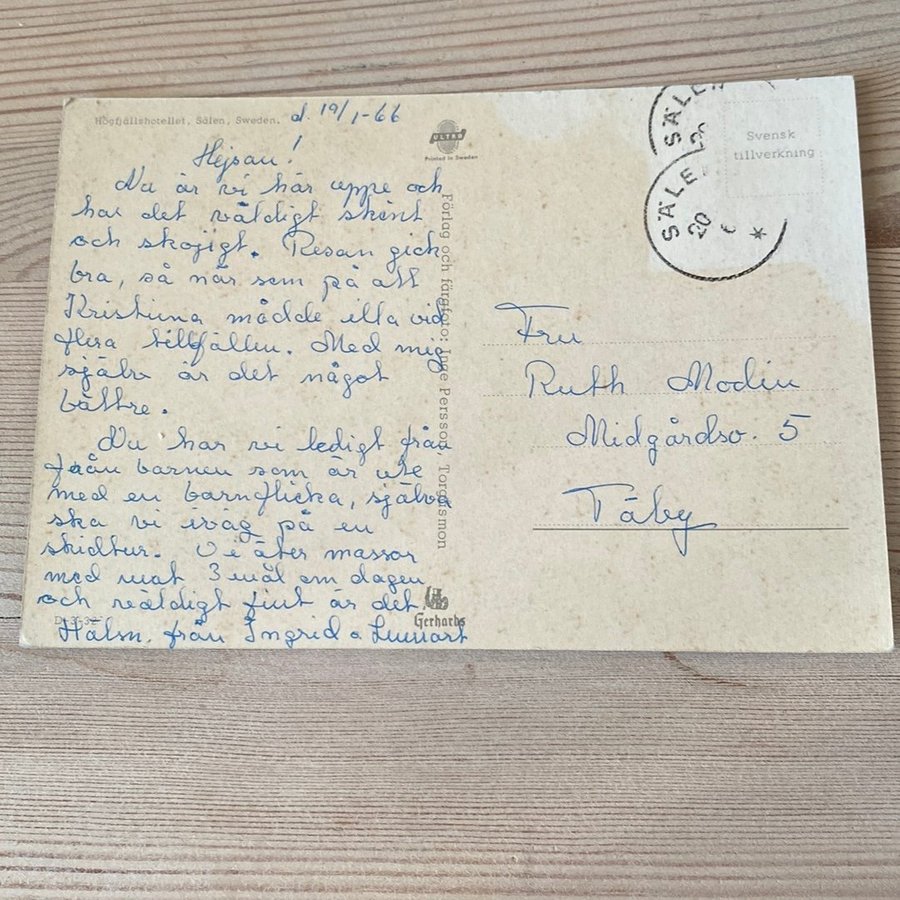 Högfjällshotellet, Sälen, Sweden.
d. 19/1-66
Hejsan!
Nu är vi här uppe och
har det väldigt skönt
och skojigt. Resan gick
bra, så när som på att
Kristiina mådde illa vid
flera tillfällen. Med mig
själv är det något
bättre.
Nu har vi ledigt från
från barnen som är ute
med en barnflicka, själva
ska vi iväg på en
skidtur. Vi äter massor
med mat 3 mål om dagen
och väldigt fint är det.
Hälsn. från Ingrid o Lennart
ULTRA
Printed in Sweden
Förlag och färgfoto: Inge Persson, Torgåsmon
Gerhards
SÄLE
SÄLE
20
Svensk
tillverkning
Fru
Ruth Modin
Midgårdsv. 5
Täby